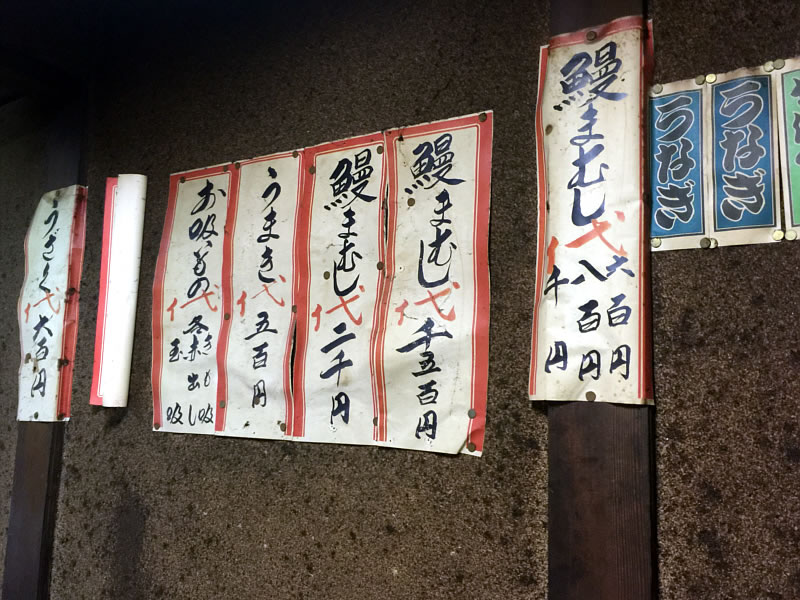 うなぎ
うなぎ
鰻まむし代
六百円
八百円
千円
鰻まむし代千五百円
鰻まむし代二千円
うまき代五百円
お吸もの代
きも吸
赤出し
玉吸
うざく代六百円